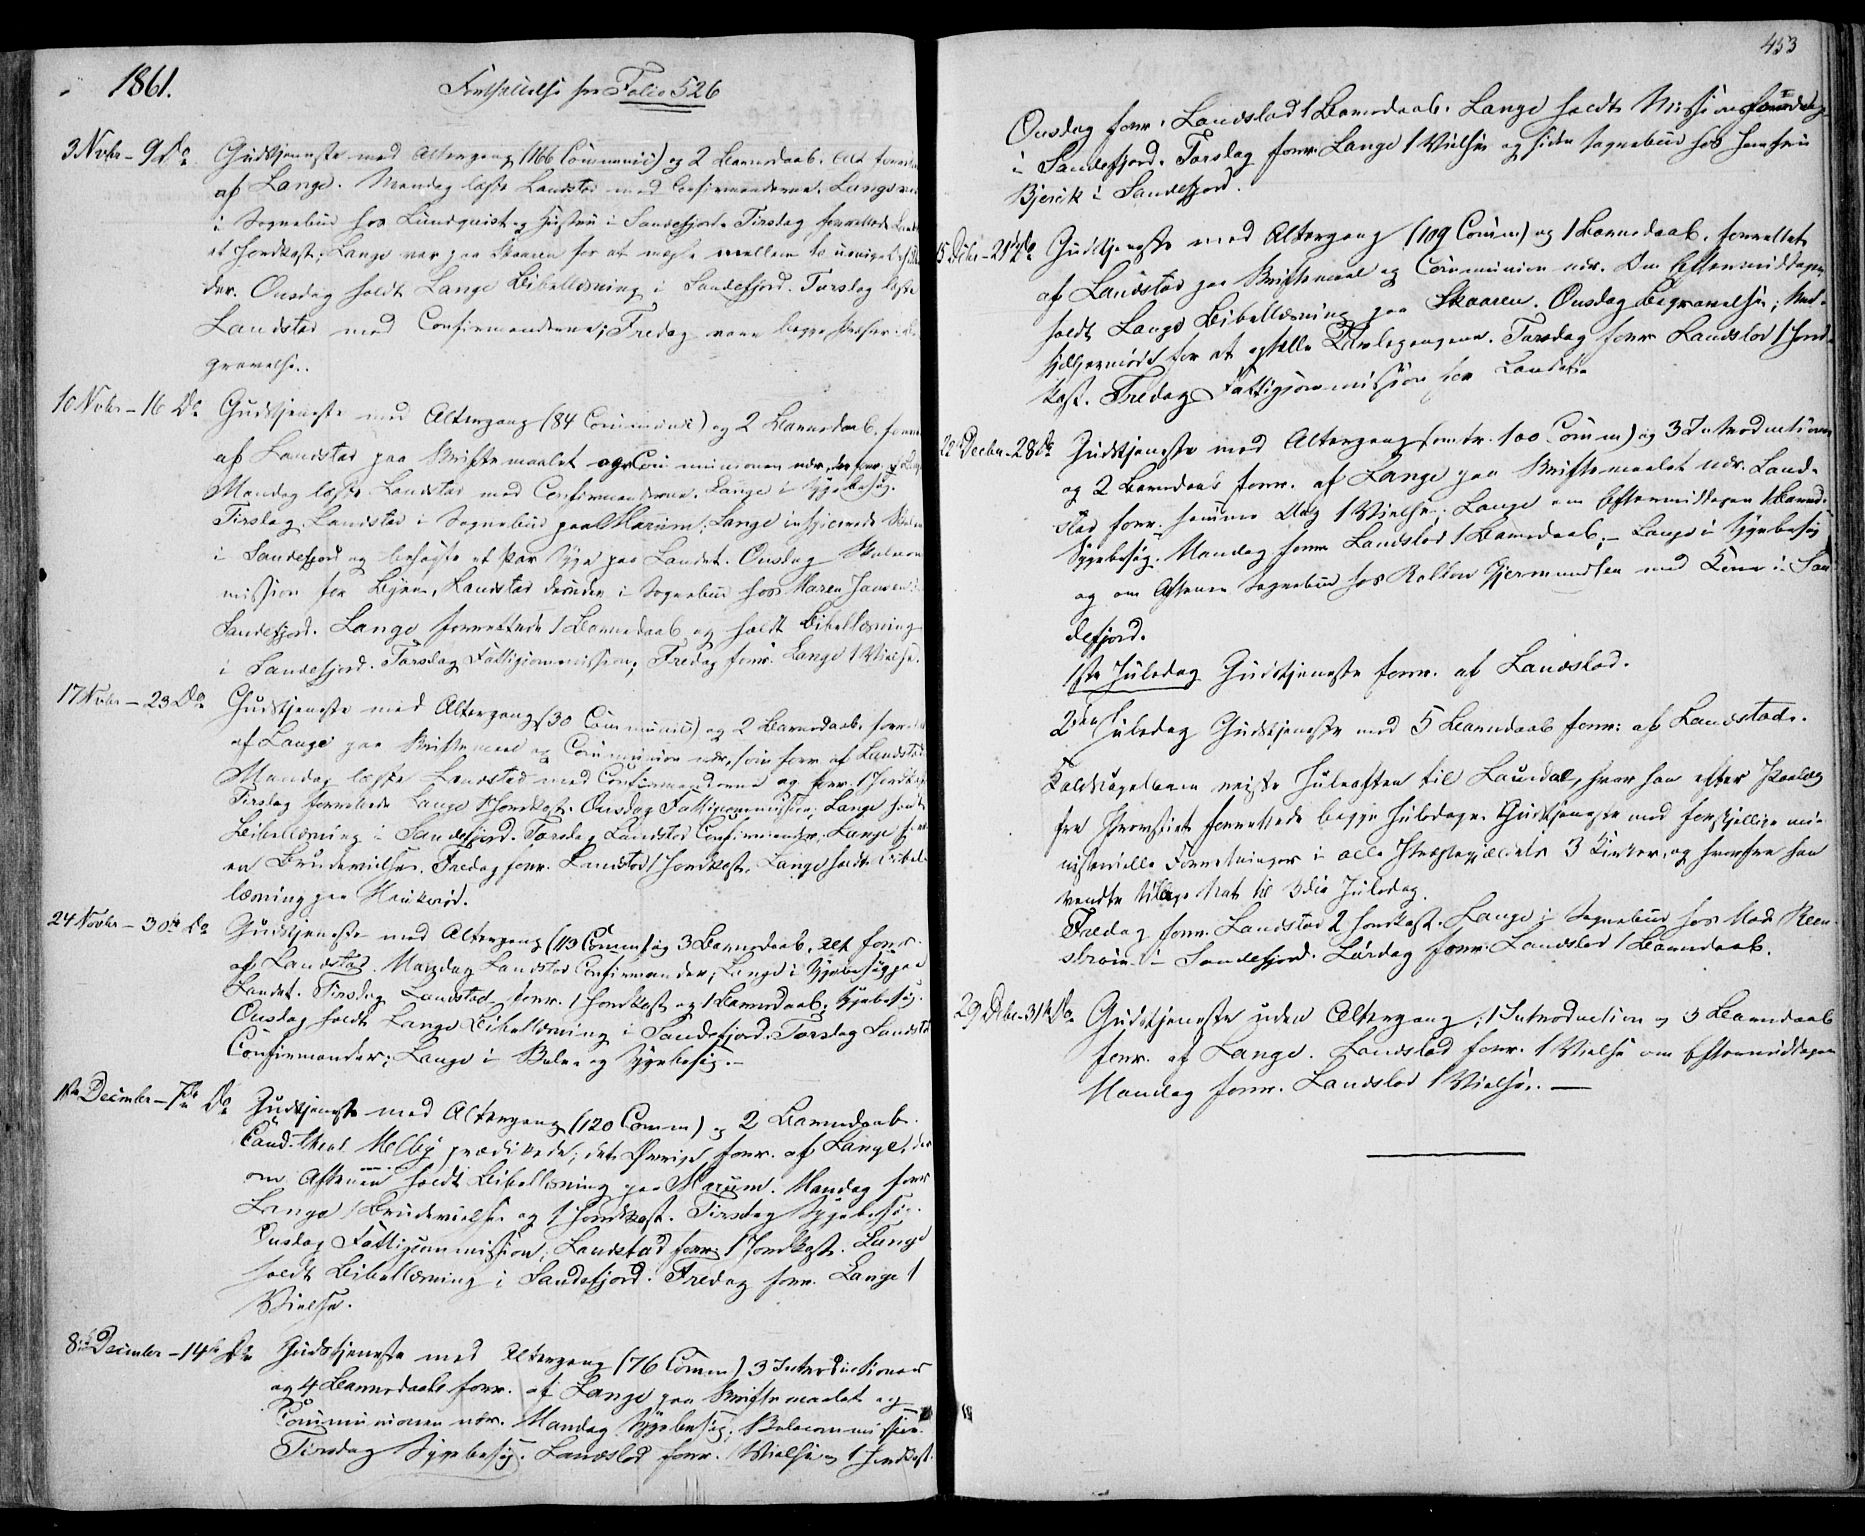 1861.
Fortsættelse fra Folio 526
3 Novbr – 9 Do Gudstjeneste med Altergang (166 Communic) og 2 Barnedaab. Alt
af Lange. Mandag læste Landstad med Confirmanderne. Lange
i Sognebud hos Lundquist og Hustru i Sandefjord. Tirsdag forrettede
et Jordkast; Lange var paa Skaaren for at megle mellem to uenige
der. Onsdag holdt Lange Bibellæsning i Sandefjord. Torsdag læste
Landstad med Confirmanderne; Fredag vare begge Præster
gravelse.
10 Novbr – 16 Do Gudstjeneste med Altergang (84 Communic) og 2 Barnedaab. forr
af Landstad paa Skriftemaalet og Communionen nær, der forr. af Lange
Mandag læste Landstad med Confirmanderne. Lange i Sygebesøg.
Tirsdag. Landstad i Sognebud paa Marum; Lange
i Sandefjord og besøgte et Par Syge paa Landet. Onsdag
mission for Byen, Landstad i Sognebud hos Maren Hansen
Sandefjord. Lange forrettede 1 Barnedaab og holdt Bibellæsning
i Sandefjord. Torsdag Fattigcommission; Fredag forr. Lange 1 Vielse.
17 Novbr – 23 Do Gudstjeneste med Altergang (30 Communic) og 2 Barnedaab. forrettet
af Lange paa Skriftemaal og Communion nær, som forr. af Landstad
Mandag læste Landstad med Confirmanderne og forr. 1 Jordkast
Tirsdag forrettede Lange 1 Jordkast. Onsdag Fattigcommission; Lange holdt
Bibellæsning i Sandefjord. Torsdag Landstad Confirmander; Lange forr
en Brudevielse. Fredag forr. Landstad 1 Jordkast, Lange holdt Bibel-
læsning paa Haukerød.
24 Novbr – 30te Do Gudstjeneste med Altergang (113 Comm) og 3 Barnedaab, Alt forr.
af Landstad. Mandag Landstad Confirmander; Lange i Sygebesøg paa
Landet. Tirsdag Landstad forr. 1 Jordkast og 1 Barnedaab; Sygebesøg.
Onsdag holdt Lange Bibellæsning i Sandefjord. Torsdag Landstad
Confirmander; Lange i Skole og Sygebesøg. –
1ste December – 7de Do Gudstjeneste med Altergang (120 Comm) og 2 Barnedaab.
Cand. theol. Melby prædikede; det Øvrige forr. af Lange, der
om Aftenen holdt Bibellæsning paa Marum. Mandag forr
Lange 1 Brudevielse og 1 Jordkast. Tirsdag Sygebesøg.
Onsdag Fattigcommission; Landstad forr. 1 Jordkast. Lange
holdt Bibellæsning i Sandefjord. Fredag forr. Lange 1
Vielse.
8de December – 14de Do Gudstjeneste med Altergang (76 Comm) 3 Introductioner
og 4 Barnedaab forr. af Lange paa Skriftemaalet og
Communionen nær. Mandag Sygebesøg; Skolecommission.
Tirsdag Sygebesøg. Landstad forr. 1 Vielse og 1 Jordkast.
453
Onsdag forr. Landstad 1 Barnedaab. Lange holdt Missionsforedrag
i Sandefjord. Torsdag forr. Lange 1 Vielse og siden Sognebud hos Jomfru
Bjerck i Sandefjord.
15 Debr – 21de Do Gudstjeneste med Altergang (109 Comm) og 1 Barnedaab. forrettet
af Landstad paa Skriftemaal og Communion nær. Om Eftermiddagen
holdt Lange Bibellæsning paa Skaaren. Onsdag Begravelse; Med-
hjelpermøde for at optælle Tavlepengene. Torsdag forr Landstad 1 Jord-
kast. Fredag Fattigcommission for Landet.
22 Decbr – 28 Do Gudstjeneste med Altergang (omtr. 100 Comm) og 3 Introductioner
og 2 Barnedaab forr. af Lange paa Skriftemaalet nær. Land-
stad forr. samme Dag 1 Vielse. Lange om Eftermiddagen 1 Barned.
Sygebesøg. Mandag forr Landstad 1 Barnedaab; – Lange i Sygebesøg
og om Aftenen Sognebud hos Gjermundsen med Kone i San-
defjord.
1ste Juledag Gudstjeneste forr. af Landstad.
2den Juledag Gudstjeneste med 5 Barnedaab forr: af Landstad.
Kaldskapellanen reiste Juleaften til Laurdal, hvor han efter Paalæg
fra Provstiet forrettede begge Juledage Gudstjeneste med forskjellige mi-
nisterielle Forretninger i alle Præstegjældets 3 Kirker, og hvorfra han
vendte tilbage Nat til 3die Juledag.
Fredag forr. Landstad 2 Jordkast. Lange i Sognebud hos Mad.
strøm i Sandefjord. Lørdag forr. Landstad 1 Barnedaab.
29 Debr – 31te Do Gudstjeneste uden Altergang; 1 Introduction og 3 Barnedaab
forr. af Lange. Landstad forr. 1 Vielse om Eftermiddagen
Mandag forr. Landstad 1 Vielse. –